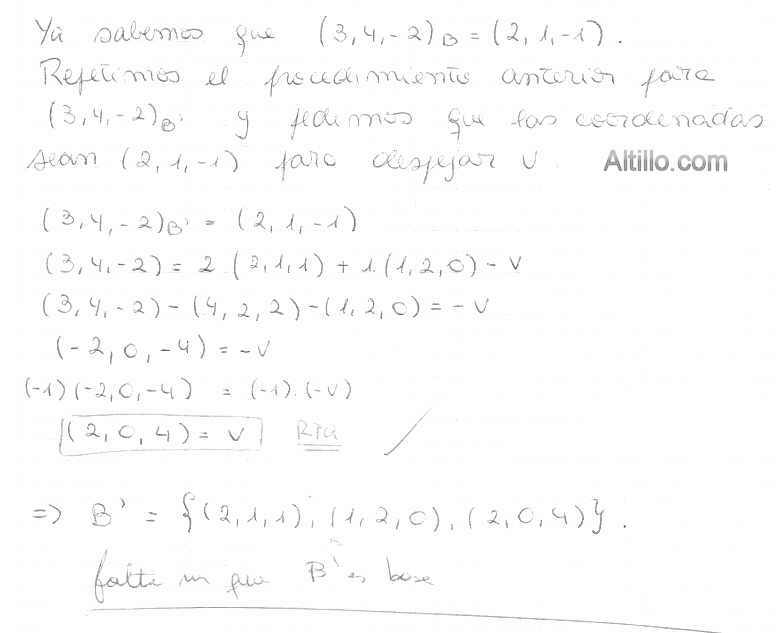 Ya sabemos que (3,4,-2)B = (2,1,-1).
Repetimos el procedimiento anterior para
(3,4,-2)B' y pedimos que las coordenadas
sean (2,1,-1) para despejar v.
Altillo.com
(3,4,-2)B' = (2,1,-1)
(3,4,-2) = 2.(2,1,1) + 1.(1,2,0) - v
(3,4,-2) - (4,2,2) - (1,2,0) = -v
(-2,0,-4) = -v
(-1)(-2,0,-4) = (-1).(-v)
(2,0,4) = v Rta
=> B' = {(2,1,1);(1,2,0),(2,0,4)}.
falta que B' es base